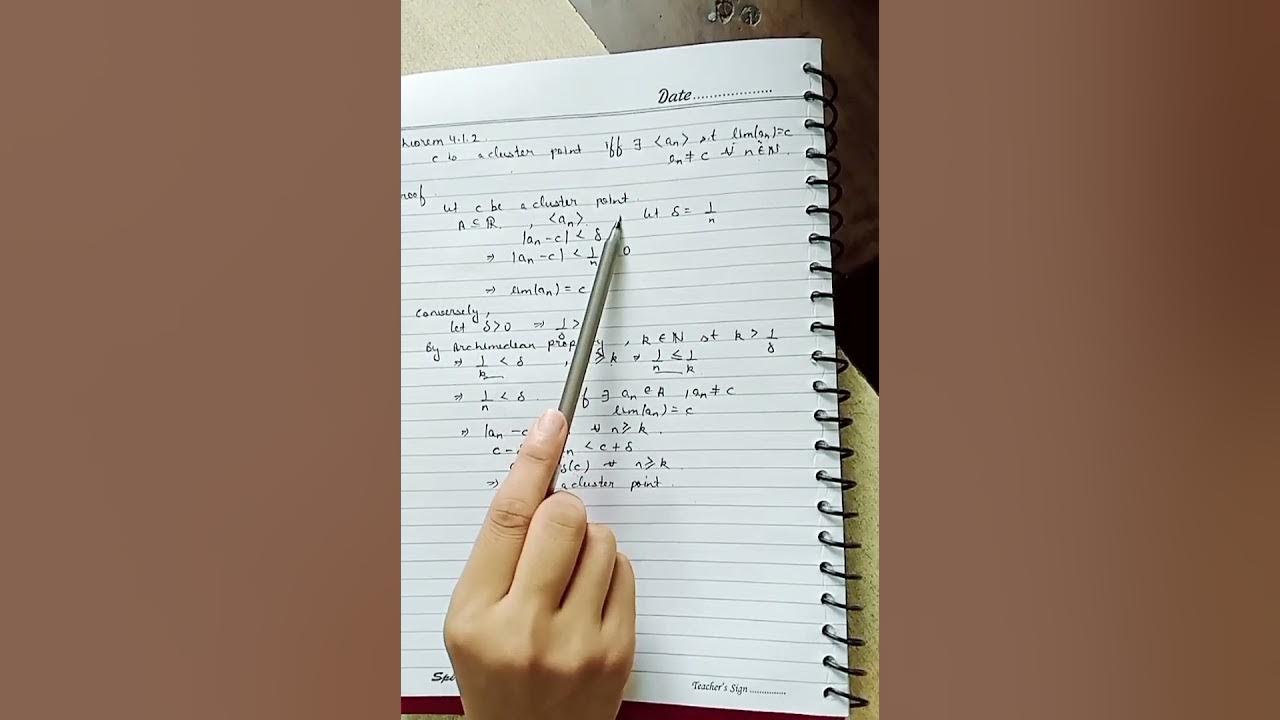 Date
heorem 4.1.2.
c is a cluster point iff ∃ <an> s.t lim(an)=c
an ≠ c ∀ n ∈ N.
roof.
let c be a cluster point.
A ⊆ R , <an> let δ = 1/n
|an - c| < δ
⇒ |an - c| < 1/n 0
⇒ lim(an) = c
Conversely,
let δ>0 ⇒ 1/δ >
By Archimedean prop , k ∈ N st k > 1/δ
⇒ 1/k < δ , ≥ k ⇒ 1/n ≤ 1/k
⇒ 1/n < δ . f ∃ an ∈ A , an ≠ c
lim(an) = c
⇒ |an - c ∀ n ≥ k .
c - n < c + δ
(c) ∀ n ≥ k
⇒ a cluster point .
Sp
Teacher's Sign